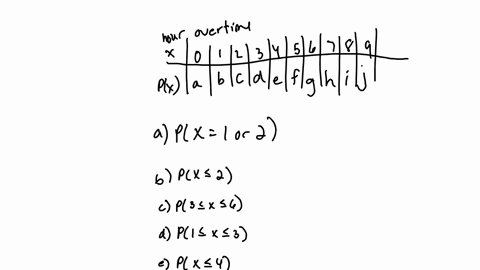 hour overtime
x | 0 | 1 | 2 | 3 | 4 | 5 | 6 | 7 | 8 | 9 |
P(x) | a | b | c | d | e | f | g | h | i | j |
a) P(X = 1 or 2)
b) P(X ≤ 2)
c) P(3 ≤ x ≤ 6)
d) P(1 ≤ x ≤ 3)
e) P(x ≤ 4)